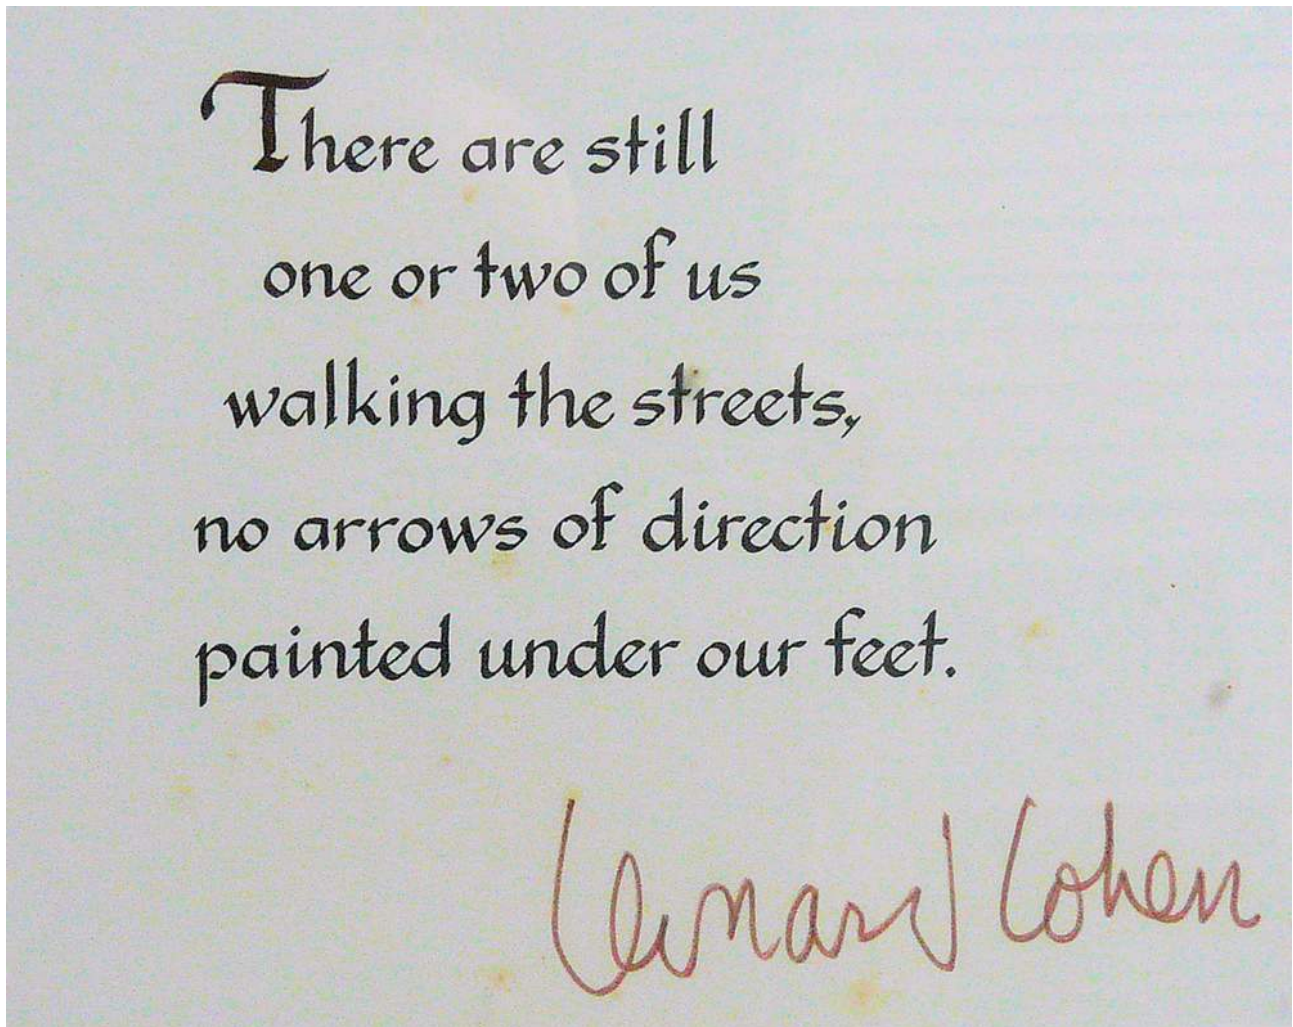 There are still
one or two of us
walking the streets,
no arrows of direction
painted under our feet.
Leonard Cohen